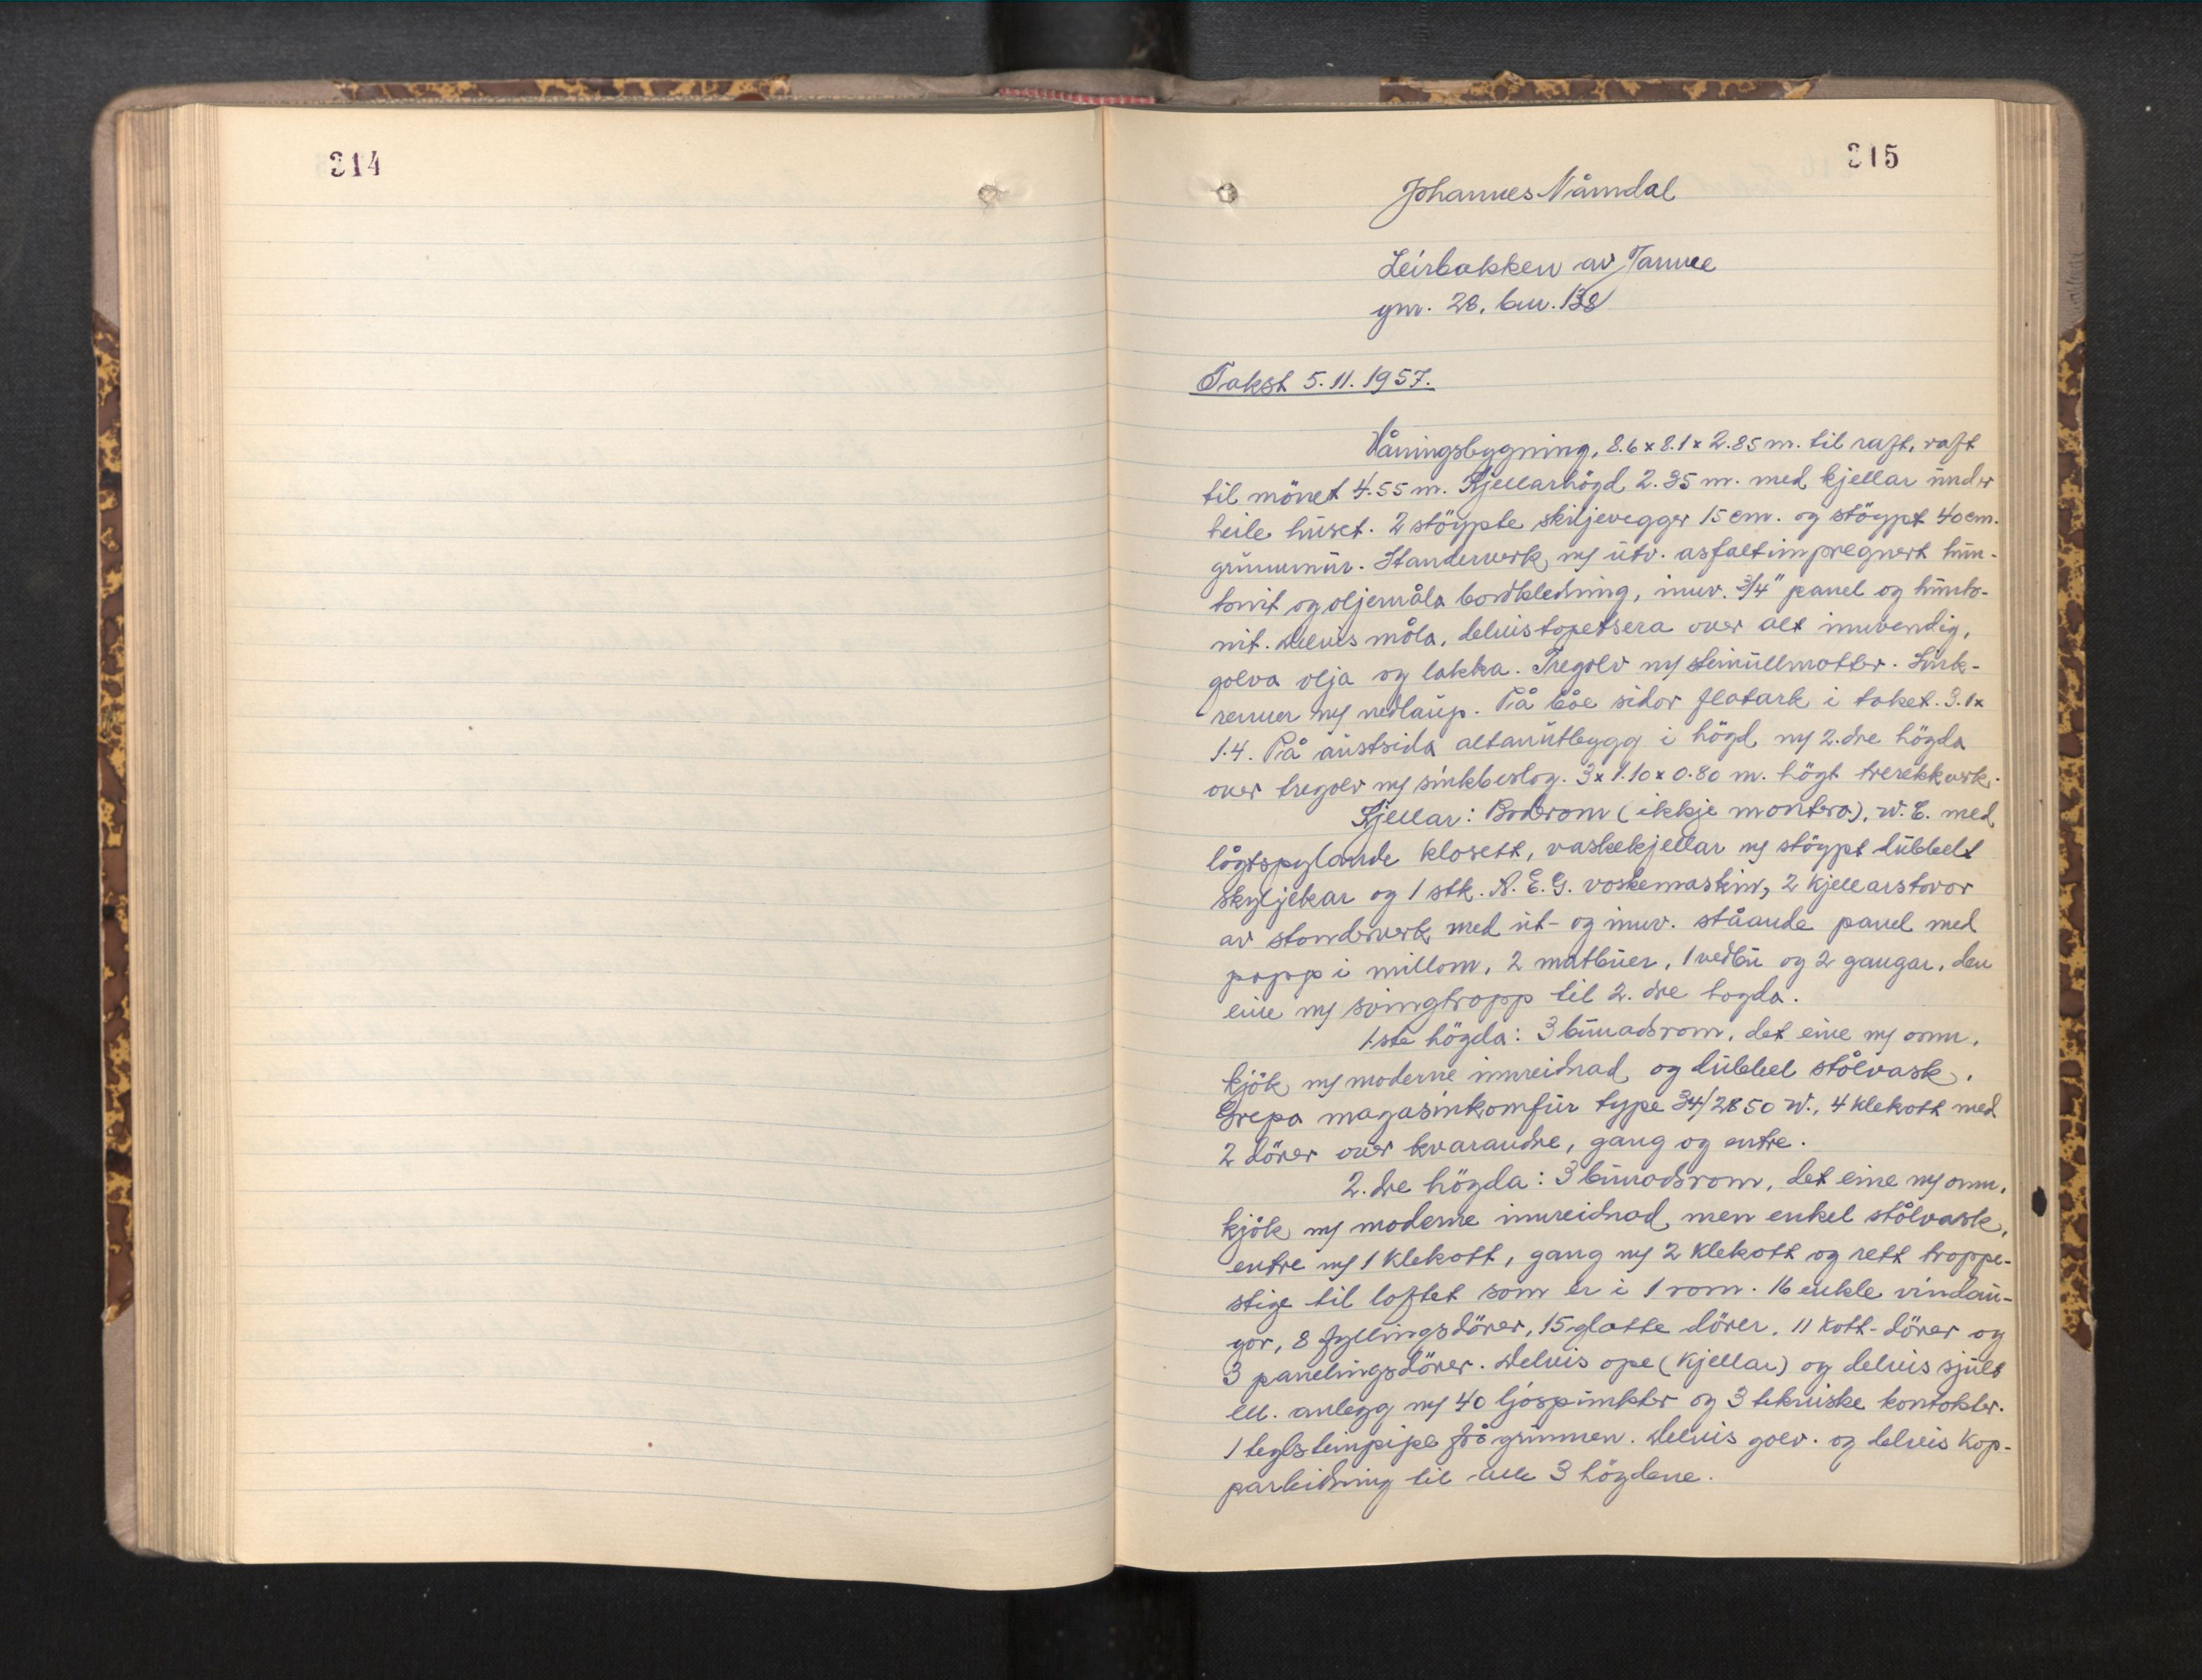 314
315
Johannes Nåmdal
Leirbakken av Tanne
gnr. 28, bnr. 138
Takst 5.11.1957.
Våningsbygning, 8.6 x 8.1 x 2.85 m. til raft, raft
til mönet 4.55 m. Kjellarhögd 2.35 m. med kjellar under
heile huset. 2 stöypte skiljevegger 15 cm. og stöypt 40 cm.
grunnmur. Standerverk m/ utv. asfaltimpregnert hun-
tonit og oljemåla bordkledning, innv. 3/4" panel og hunto-
nit. Delvis måla, delvis tapetsera over alt innvendig,
golva olja og lakka. Tregolv m/ steinullmatter. Sink-
renner m/ nedlaup. På båe sidor flatark i taket. 3.1 x
1.4. På austsida altanutbygg i högd m/ 2.dre högda
over tregolv m/ sinkbeslag. 3 x 1.10 x 0.80 m. högt trerekkverk.
Kjellar: Baderom (ikkje montera), W.C. med
lågtspylande klosett, vaskekjellar m/ stöypt dubbelt
skyljekar og 1 stk. A.E.G. vaskemaskin, 2 kjellarstovor
av standerverk med ut- og innv. ståande panel med
papp i millom, 2 matbuer, 1 vedbu og 2 gangar, den
eine m/ svingtrapp til 2. dre hogda.
1.ste högda: 3 bunadsrom, det eine m/ omn,
kjök m/ moderne innreidnad og dubbel stålvask.
Grepa magasinkomfur type 34/2850 W., 4 klekott med
2 dörer over kvarandre, gang og entre.
2. dre högda: 3 bunadsrom, det eine m/ omn,
kjök m/ moderne innreidnad men enkel stålvask,
entre m/ 1 klekott, gang m/ 2 klekott og rett trappe-
stige til loftet som er i 1 rom. 16 enkle vindau-
gor, 8 fyllingsdörer, 15 glatte dörer, 11 kott-dörer og
3 panelingsdörer. Delvis ope (kjellar) og delvis sjult
ell. anlegg m/ 40 ljospunkter og 3 tekniske kontakter.
1 teglsteinpipe frå grunnen. Delvis galv. og delvis kop-
parleidning til alle 3 högdene.